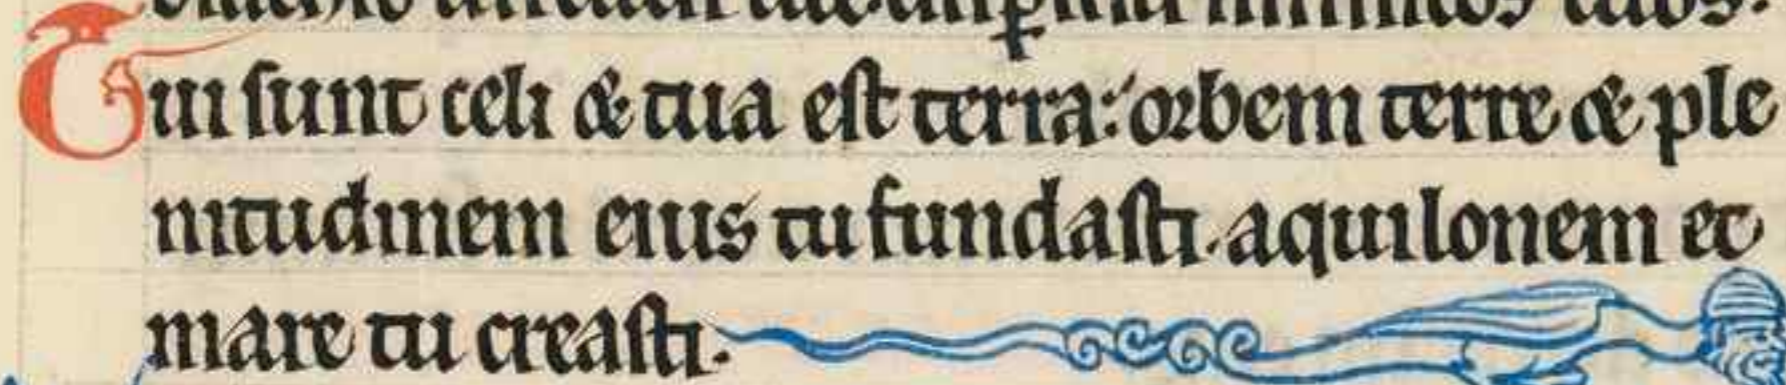 inimicos tuos.
Tui sunt celi & tua est terra: orbem terre & ple
nitudinem eius tu fundasti. aquilonem et
mare tu creasti.